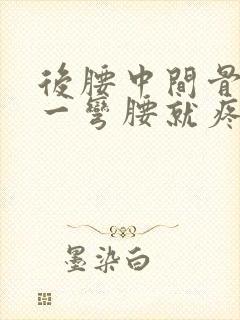 後腰中間骨
一彎腰就疼
墨染白